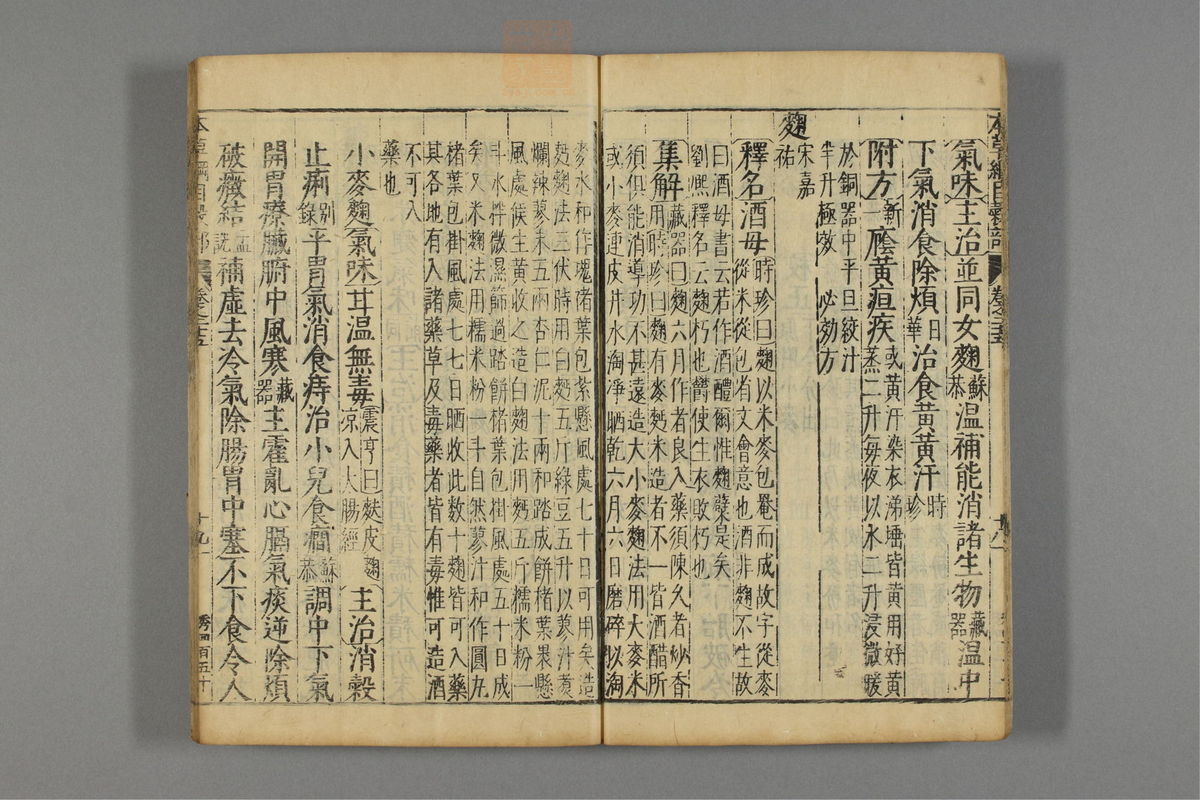 氣味主治並同女麴蘇恭溫補能消諸生物藏器溫中
下氣消食除煩日華治食黃黃汗時珍
附方新一陰黃疸疾或黃汗染衣涕唾皆黃用好黃
蒸二升每夜以水二升浸微暖
於銅器中平旦絞汁
半升極效　必効方
麴宋嘉祐
釋名酒母時珍曰麴以米麥包罨而成故字從麥
從米從包省文會意也酒非麴不生故
曰酒母書云若作酒醴爾惟麴糵是矣
劉熙釋名云麴朽也鬱使生衣敗朽也
集解藏器曰麴六月作者良入藥須陳久者炒香
用時珍曰麴有麥麪米造者不一皆酒醋所
須俱能消導功不甚遠造大小麥麴法用大麥米
或小麥連皮井水淘淨晒乾六月六日磨碎以淘
麥水和作塊楮葉包紮懸風處七十日可用矣造
麪麴法三伏時用白麪五斤綠豆五升以蓼汁煮
爛辣蓼末五兩杏仁泥十兩和踏成餅楮葉裹懸
風處候生黃收之造白麴法用麪五斤糯米粉一
斗水拌微濕篩過踏餅楮葉包掛風處五十日成
矣又米麴法用糯米粉一斗自然蓼汁和作圓丸
楮葉包掛風處七七日晒收此數十麴皆可入藥
其各地有入諸藥草及毒藥者皆有毒惟可造酒
不可入
藥也
小麥麴氣味甘溫無毒震亨曰麩皮麴
涼入大腸經主治消穀
止痢別錄平胃氣消食痔治小兒食癇蘇恭調中下氣
開胃療臟腑中風寒藏器主霍亂心膈氣痰逆除煩
破癥結孟詵補虛去冷氣除腸胃中塞不下食令人
卷之二十五
十九